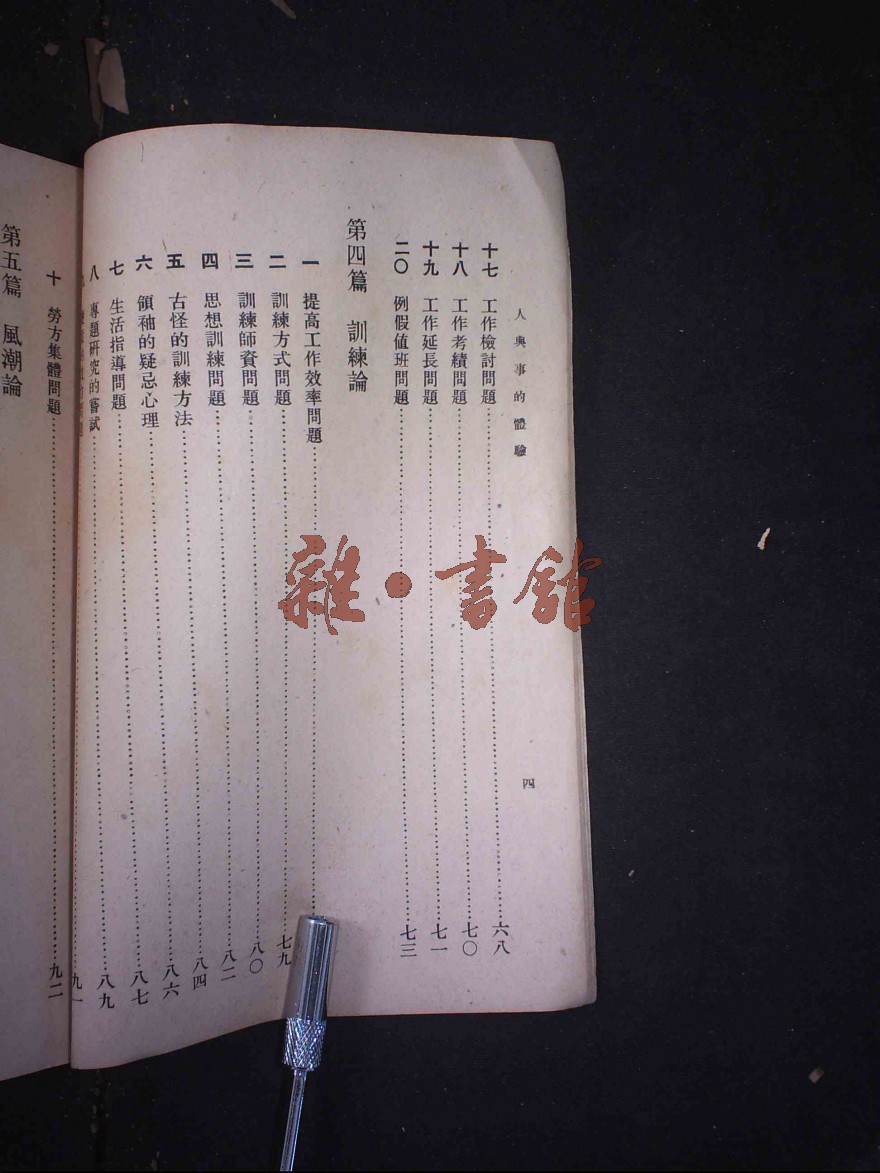 人與事的體驗
四
十七 工作檢討問題…………六八
十八 工作考績問題…………七〇
十九 工作延長問題…………七一
二〇 例假值班問題…………七三
第四篇 訓練論
一 提高工作效率問題…………
二 訓練方式問題…………七九
三 訓練師資問題…………八〇
四 思想訓練問題…………八二
五 古怪的訓練方法…………八四
六 領袖的疑忌心理…………八六
七 生活指導問題…………八七
八 專題研究的嘗試…………八九
…………九一
十 勞方集體問題…………九二
第五篇 風潮論
雜·書館